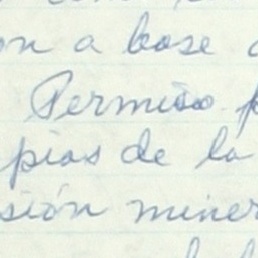 on a base
Permiso p
pias de la
sión miner